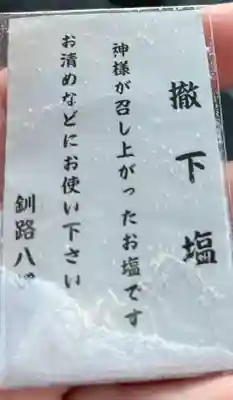 撤下塩
神様が召し上がったお塩です
お清めなどにお使い下さい
釧路八